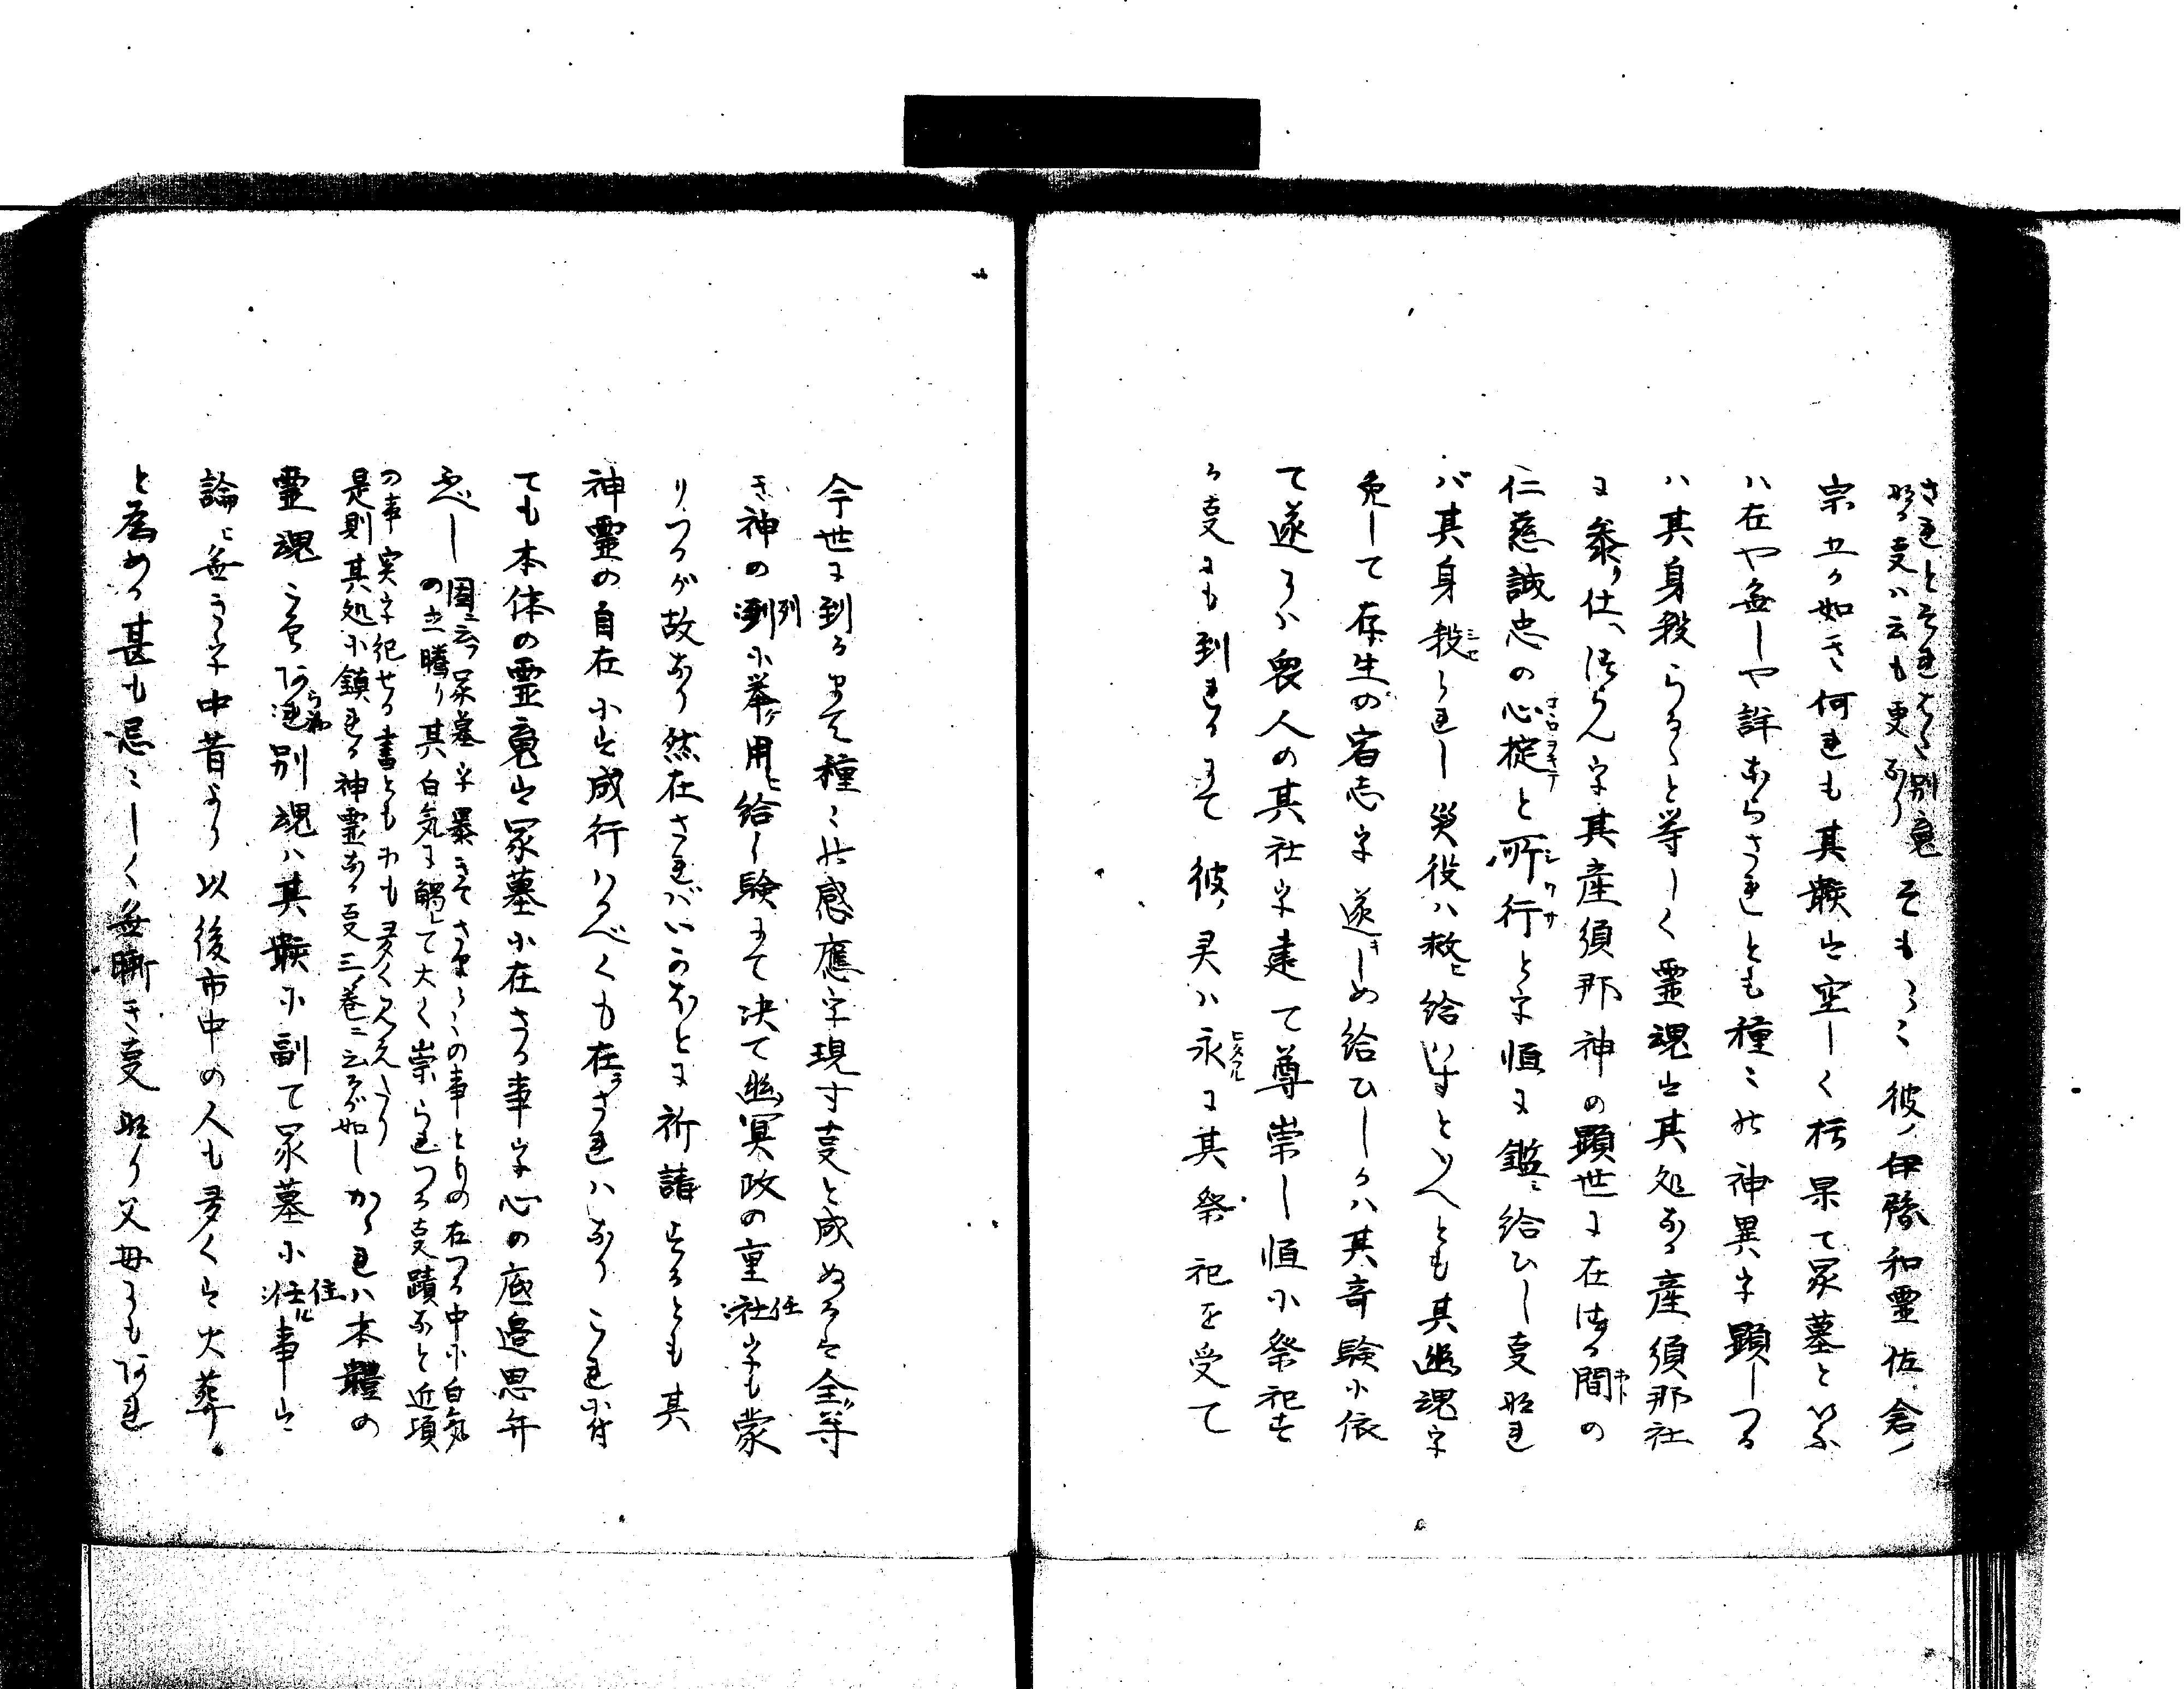 さればとそればかり別魂
なる事ハ云も更なり
そもそも彼ノ伊豫和霊佐倉ノ
宗五の如き何れも其骸は空しく朽果て冢墓といふ
ハ在や無しや詳ならされとも種々の神異を顕しつる
ハ其身殺らるゝと等しく霊魂は其処なる産須那社
に参り仕へ侍らん其産須那神の顕世に在ける間の
仁慈誠忠の心掟と所行とを恒に鑑ミ給ひし事なれ
バ其身殺しれし災役ハ救ヒ給ハずといへとも其幽魂を
免して存生の宿志を遂しめ給ひしかハ其奇験に依
て遂にハ衆人の其社を建て尊崇し恒に祭祀す
る事にも到れるにて彼ノ霊ハ永に其祭祀を受て
今世に到るまて種々の感應を現す事と成ぬるは全等
き神の列に挙ケ用ヒ給し験にて決て幽冥政の重任をも蒙
りつるが故なり然在されバいかなることに祈請するとも其
神霊の自在には成行ハるべくも在らされハなりこれに付
ても本体の霊魂は冢墓に在さる事を心の底邊思弁
ふべし
因云冢墓を暴きてさまゝゝの事とりの在つる中に白氣
の立騰り其白気に觸レて大く祟られつる事蹟なと近頃
の事実を記せる書ともにも多く見えたり
是則其処に鎮れる神霊なる事三ノ巻ニ云るが如し
かゝれハ本體の
霊魂こそあらね別魂ハ其骸に副て冢墓に住ル事は
論ヒ無うを中昔より以後市中の人も多くは火葬
と為める甚も忌ゝしく無慚き事なり父母にもあれ